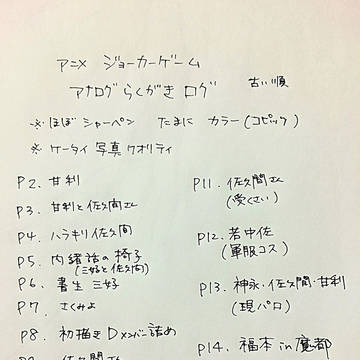 アニメ ジョーカーゲーム
アナログ らくがき ログ 古い順
※ほぼ シャーペン たまに カラー(コピック)
※ ケータイ 写真 クオリティ
P2. 甘利
P3. 甘利と佐久間さん
P4. ハラキリ佐久間
P5. 内緒話の椅子
(三好と佐久間)
P6. 書生 三好
P7. さくみよ
P8. 初描き Dメンバー詰め
佐久間さん
P11. 佐久間さん
(愛くさい)
P12. 若中佐
(軍服コス)
P13. 神永・佐久間・甘利
(現パロ)
P14. 福本 in 魔都